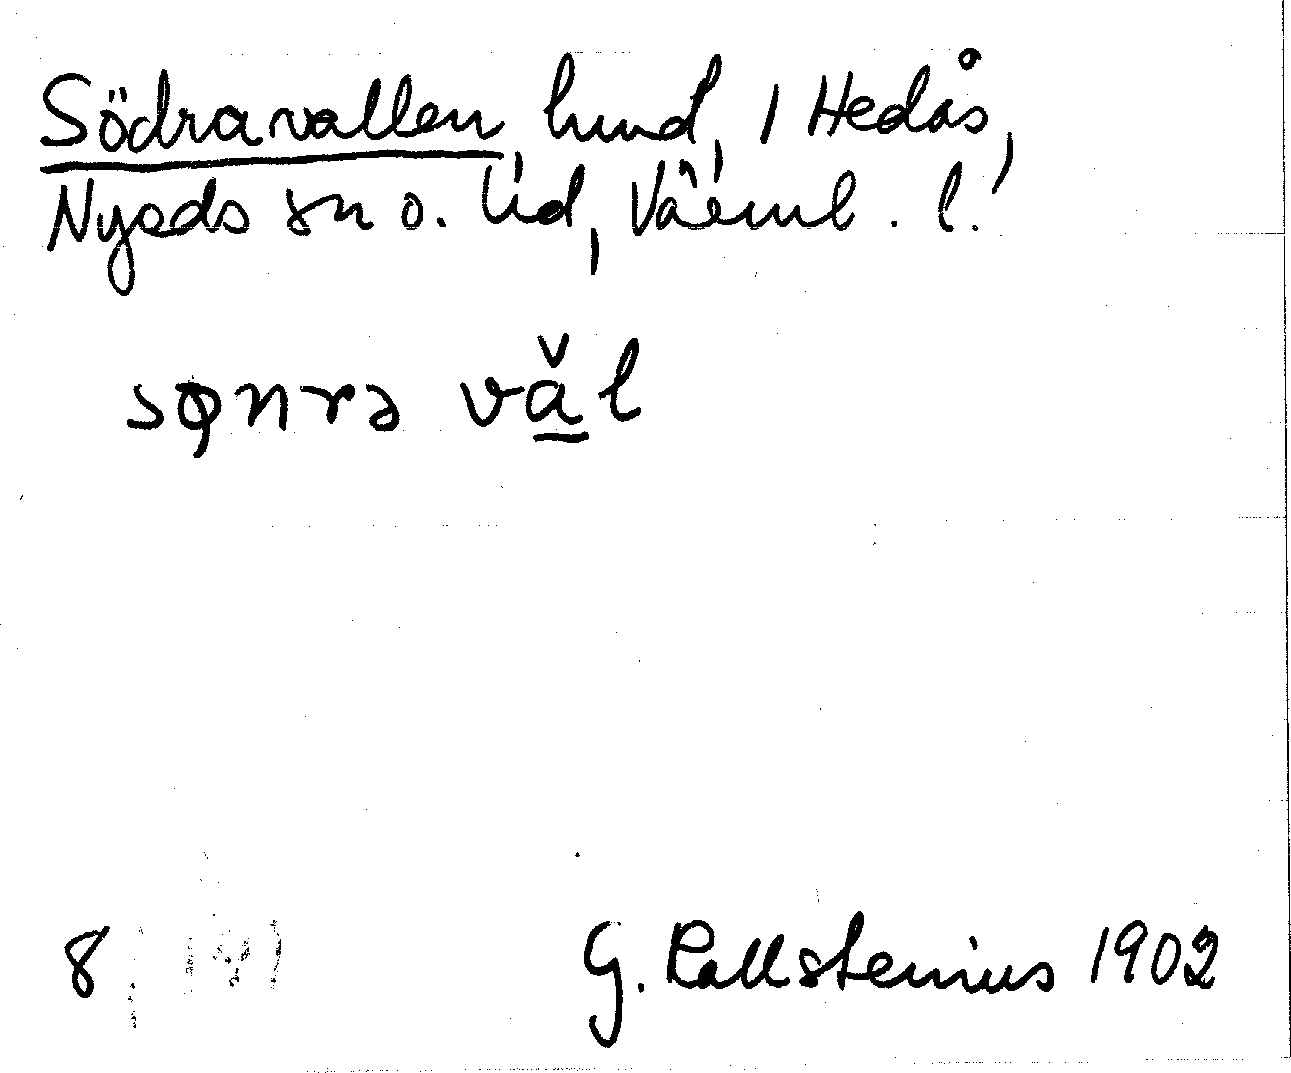 Södravallen, hmd, 1 Hedås,
Nyeds sn o. hd, Värml. l.
sǫnrə văl
8
G. Kallstenius 1902